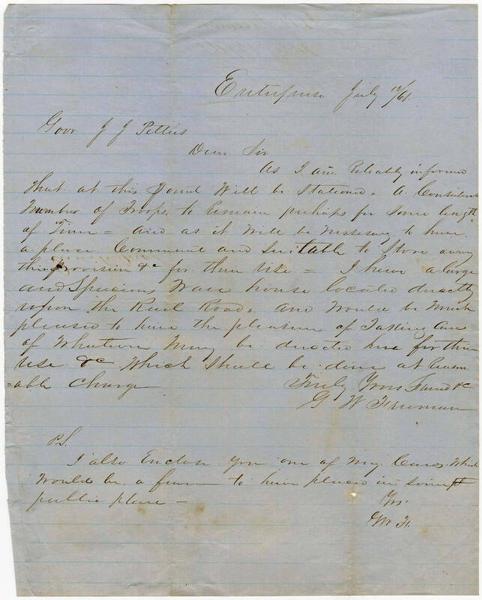 Enterprise July 12/61
Govr J J Pettus
Dear Sir
As I am Reliably informed
that at this Point Will be Stationed. A Consider
Number of Troops to Remain perhaps for some length
of Time = and as it will be necessary to have
a place Convenient and Suitable to Store away
their provision &c for their Use = I have a large
and Spacious Ware house located directly
upon the Rail Road. and Would be Much
pleased to have the pleasure of Taking Care
of Whatever May be directed here for their
Use &c Which Shall be done at Reason
able Charge
Truly Your Friend &c
G W Freeman
P.S.
I also Enclose you one of My Cards. Which
Would be a favor to have placed in some
public place —
Yrs
GW F.